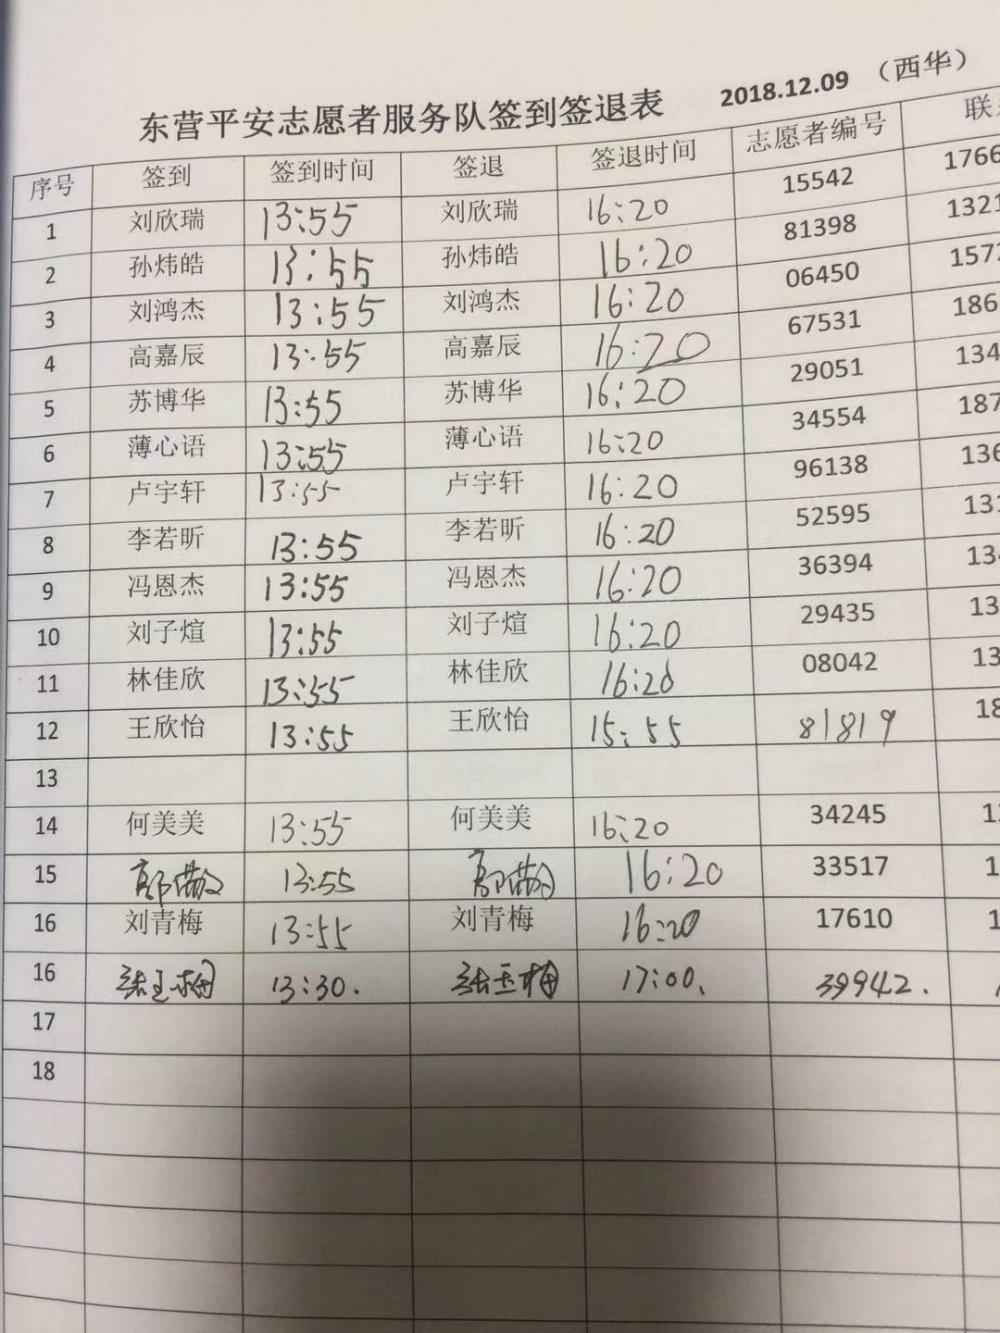 东营平安志愿者服务队签到签退表 2018.12.09 （西华）
序号 签到 签到时间 签退 签退时间 志愿者编号 联
1 刘欣瑞 13:55 刘欣瑞 16:20 15542 1766
2 孙炜皓 13:55 孙炜皓 16:20 81398 1321
3 刘鸿杰 13:55 刘鸿杰 16:20 06450 157
4 高嘉辰 13:55 高嘉辰 16:20 67531 186
5 苏博华 13:55 苏博华 16:20 29051 134
6 薄心语 13:55 薄心语 16:20 34554 187
7 卢宇轩 13:55 卢宇轩 16:20 96138 136
8 李若昕 13:55 李若昕 16:20 52595 13
9 冯恩杰 13:55 冯恩杰 16:20 36394 13
10 刘子煊 13:55 刘子煊 16:20 29435 13
11 林佳欣 13:55 林佳欣 16:20 08042 13
12 王欣怡 13:55 王欣怡 15:55 81819 18
13
14 何美美 13:55 何美美 16:20 34245 1
15 13:55 16:20 33517 1
16 刘青梅 13:55 刘青梅 16:20 17610 1
16 张玉梅 13:30. 张玉梅 17:00. 39942.
17
18